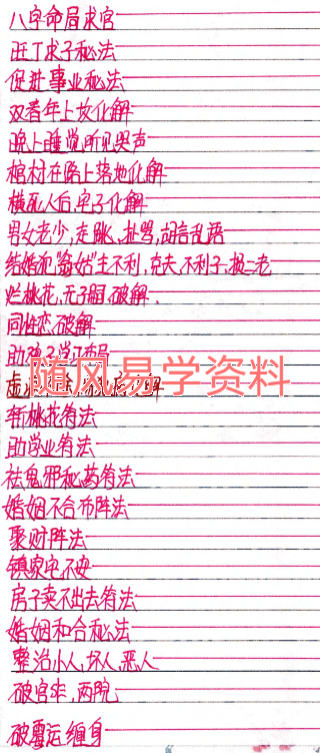 八字命局求官
旺丁求子秘法
促进事业秘法
双春年上坟化解
晚上睡觉听见哭声
棺材在路上落地化解
横死人后宅子化解
男女老少,走跳,扯骂,胡言乱语
结婚犯"翁姑"主不利,克夫,不利子,损二老
烂桃花,无子嗣,破解.
同性恋破解
助孩子学
随风易学资料
斩桃花有法
助学业有法
祛鬼邪秘药有法
婚姻不合布阵法
聚财阵法
镇家宅不安
房子卖不出去有法
婚姻和合秘法
整治小人,坏人,恶人
破官非,两院
破霉运缠身